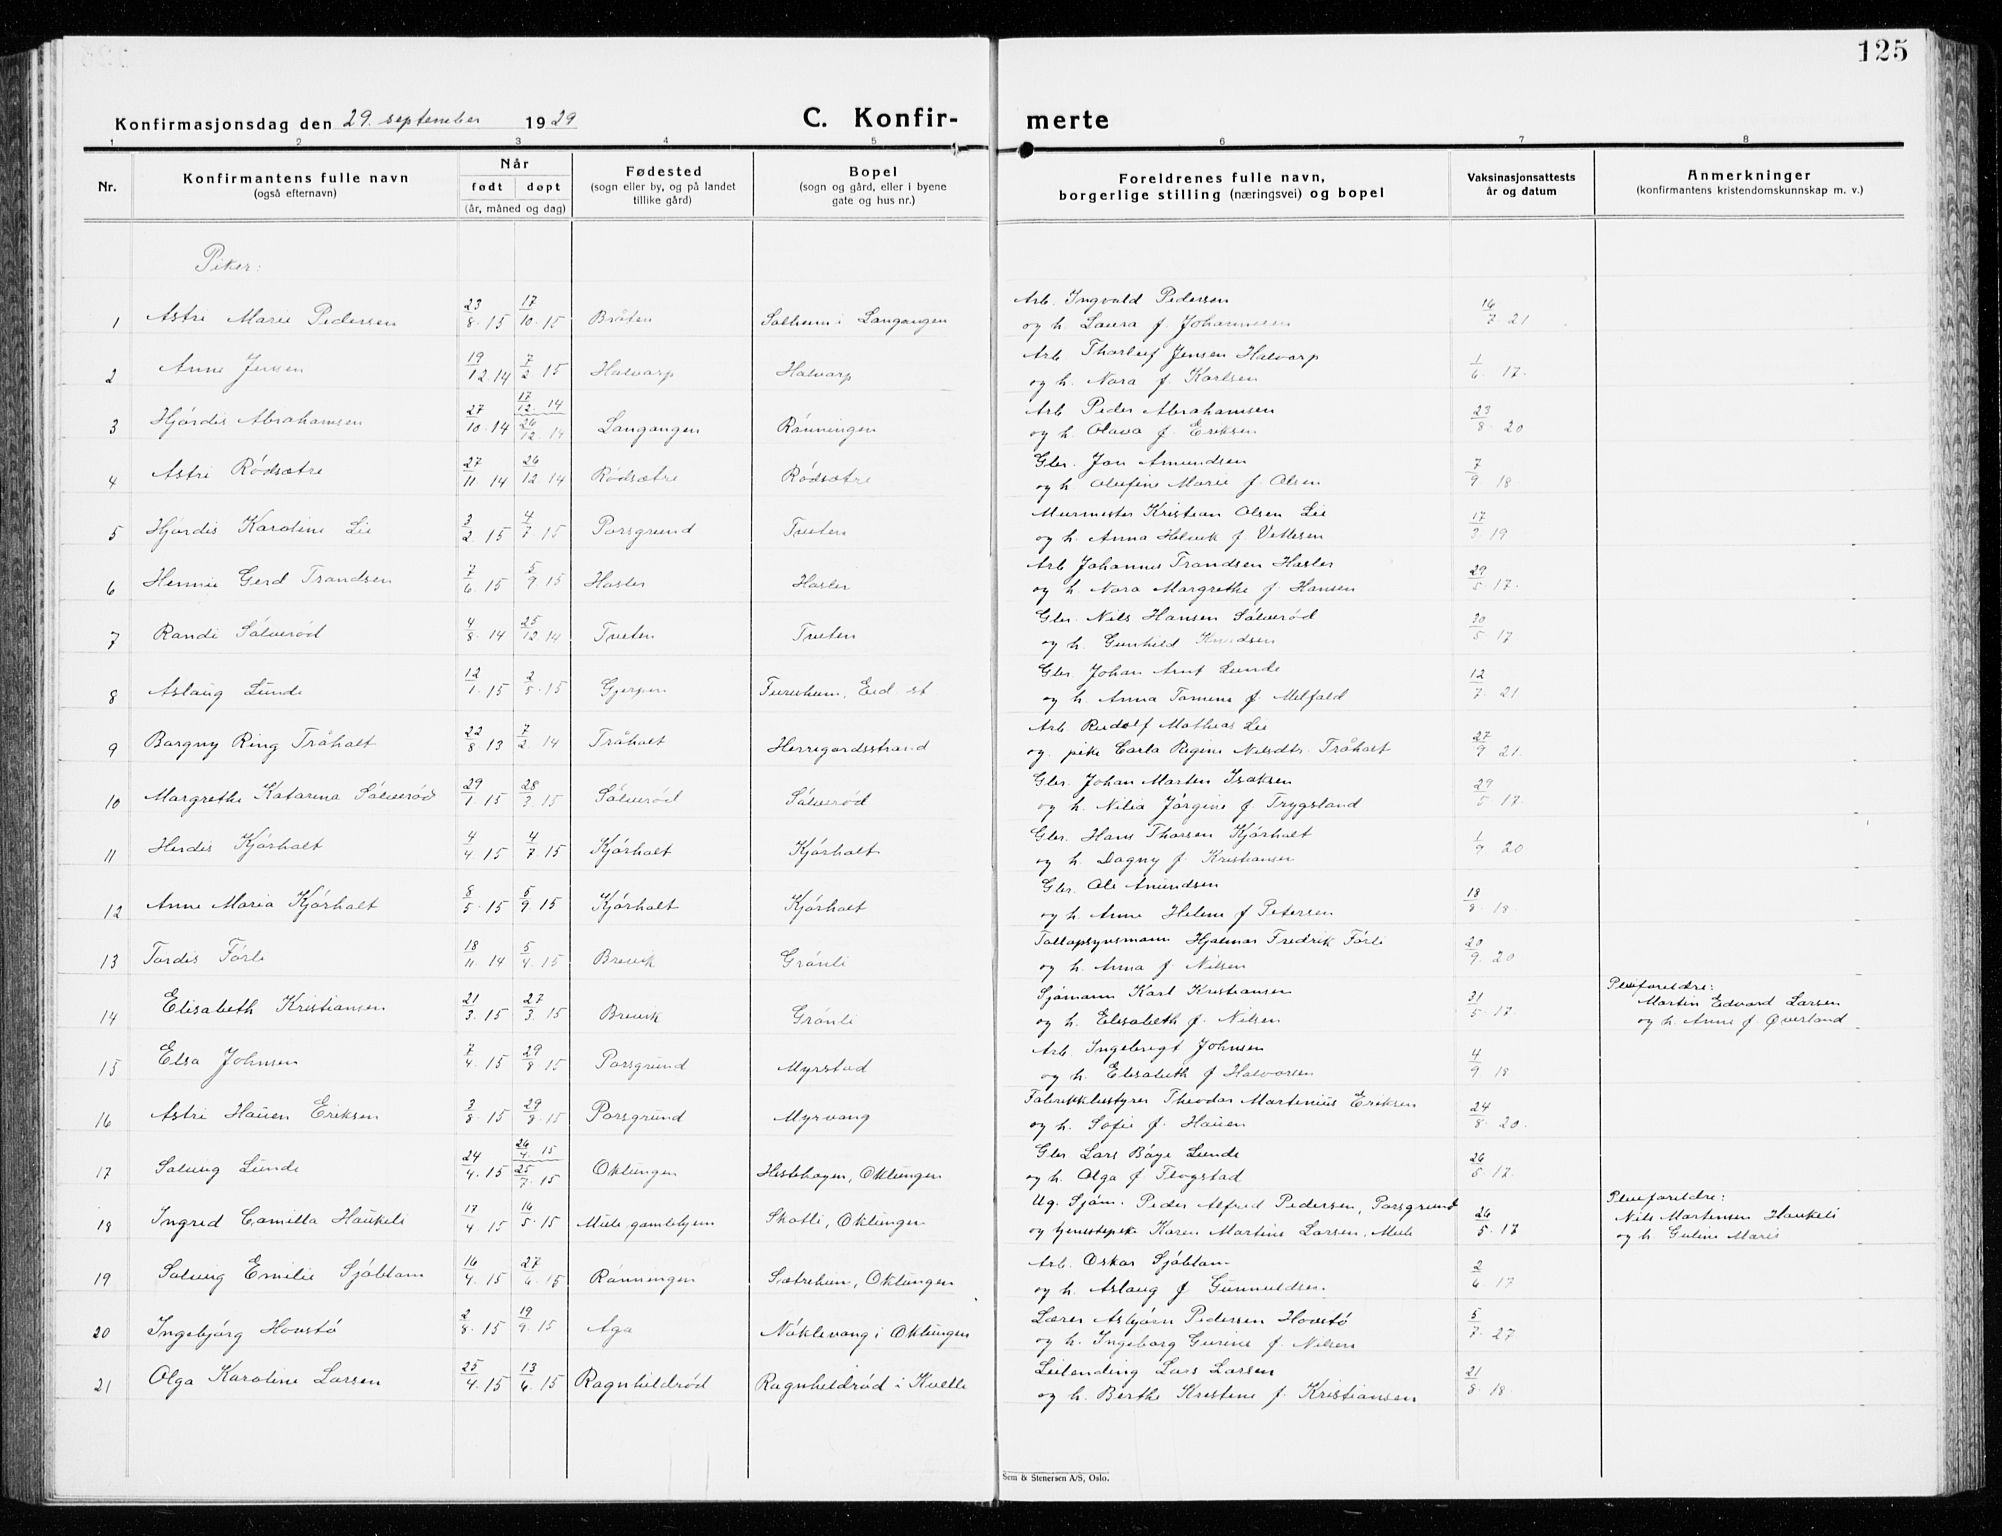 125
Konfirmasjonsdag den 29. september 1929 C. Konfir- merte
1 2 3 4 5 6 7 8
Nr. Konfirmantens fulle navn (også efternavn) Når født døpt (år, måned og dag) Fødested (sogn eller by, og på landet tillike gård) Bopel (sogn og gård, eller i byene gate og hus nr.) Foreldrenes fulle navn, borgerlige stilling (næringsvei) og bopel Vaksinasjonsattests år og datum Anmerkninger (konfirmantens kristendomskunnskap m. v.)
Piker:
1 Astri Marie Pedersen 23/8.15 17/10.15 Bråten Solheim i Langangen Arb. Ingvald Pedersen 16/7 21
og h. Laura f. Johannesen
2 Anne Jensen 19/12.14 7/2 15 Halvarp Halvarp Arb. Thorleif Jensen Halvarp 1/6 17.
og h. Nora f. Karlsen
3 Hjørdis Abrahamsen 27/10.14 17/12.14 26/12 14 Langangen Rønningen Arb. Peder Abrahamsen 23/8 20
og h. Olava f. Eriksen
4 Astri Rødsætre 27/11 14 26/12 14 Rødsætre Rødsætre Gbr. Jon Amundsen 7/9 18
og h. Olufine Marie f. Olsen
5 Hjørdis Karoline Lie 3/2 15 4/7 15 Porsgrund Tveten Murmester Kristian Olsen Lie 17/3 19
og h. Anna Helvik f. Vettesen
6 Hennie Gerd Trandsen 7/6.15 5/9 15 Hasler Hasler Arb Johannes Trandsen Hasler 29/5 17.
og h. Nora Margrethe f. Hansen
7 Randi Sølverød 4/8.14 25/12 14 Tveten Tveten Gbr. Nils Hansen Sølverød 30/5 17
og h. Gunhild Knudsen
8 Aslaug Lunde 12/1.15 2/5.15 Gjerpen Fureheim, Eid. st Gbr. Johan Arnt Lunde 12/7 21
og h. Anna Tomine f. Melfald
9 Borgny Ring Tråholt 22/8 13 7/2 14 Tråholt Herregårdsstrand Arb. Rudolf Mathias Lie 27/9 21.
og. pike Carla Regine Nilsdtr. Tråholt
10 Margrethe Katarina Sølverød 29/1.15 28/3.15 Sølverød Sølverød Gbr. Johan Marten Isaksen 29/5 17.
og h. Nilia Jørgine f. Trygsland
11 Herdis Kjørholt 4/4.15 4/7.15 Kjørholt Kjørholt Gbr. Hans Thorsen Kjørholt 1/9 20
og h. Dagny f. Kristiansen
12 Anne Maria Kjørholt 8/5.15 5/9 15 Kjørholt Kjørholt Gbr. Ole Amundsen 18/8 18.
og h. Anne Helene f Petersen
13 Tordis Førli 18/11 14 5/4.15 Brevik Grønli Tolloppsynsmann Hjalmar Fredrik Førli 20/9 20
og h. Anna f. Nilsen
14 Elisabeth Kristiansen 21/3.15 27/3.15 Brevik Grønli Sjømann Karl Kristiansen 31/5 17. Pleieforeldre: Martin Edvard Larsen
og h. Elisabeth f. Nilsen og h. Anne f. Øverland
15 Elsa Johnsen 7/4.15 29/8 15 Porsgrund Myrstad Arb Ingebregt Johnsen 4/9 18
og h. Elisabeth f Halvorsen
16 Astri Hauen Eriksen 3/8.15 29/8.15 Porsgrund Myrvang Fabrikkbestyrer Theodor Martinius Eriksen 24/8 20.
og h. Sofie f. Hauen
17 Solveig Lunde 24/4.15 26/4 15 25/7.15 Oklungen Hestehagen, Oklungen Gbr Lars Bøye Lunde 26/5 17.
og h. Olga f Flogstad
18 Ingrid Camilla Haukeli 17/4 15 16/5.15 Mule gamlehjem Skotli, Oklungen Ug. Sjøm. Peder Alfred Pedersen, Porsgrund 26/5 17 Pleieforeldre: Nils Martensen Haukeli
og tjenestepike Karen Martine Larsen. Mule og h Guline Marie
19 Solveig Emilie Sjøblom 16/4.15 27/6.15 Rønningen Sætreheim, Oklungen Arb. Oskar Sjøblom 2/6 17
og h. Aslaug f Gunnuldsen.
20 Ingebjørg Hovstø 2/8.15 19/9.15 Aga Nøklevang i Oklungen Lærer Asbjørn Pedersen Hovstø 5/7 27
og h. Ingeborg Gurine f. Nilsen
21 Olga Karoline Larsen 25/4.15 13/6.15 Ragnhildrød Ragnhildrød i Kvelle Leilending Lars Larsen 21/8 18.
og h. Berthe Kristine f. Kristiansen
Sem & Stenersen A/S, Oslo.